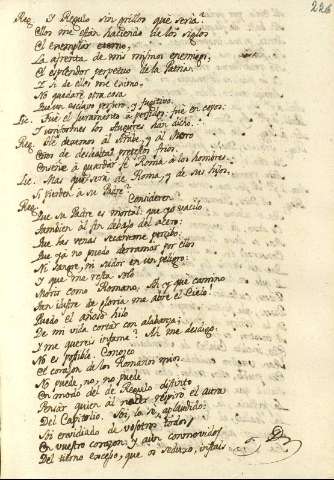 226
Reg. Y Regulo sin grillos que seria?
Ellos me estan haciendo de los siglos
El exemplar eterno,
La afrenta de mis mismos enemigos,
El esplendor perpetuo de la Patria.
Y si de ellos me eximo,
No quedaré otra cosa
Que un esclavo perjuro, y fugitivo.
Lic. Fue el juramento à perfidos, fue en cepos:
Y uniformes los Augures han dicho.
Reg. Dexemos al Arabe, y al Moro
Estos de deslealtad pretextos frios.
Enseñe à guardar fé Roma à los hombres.
Lic. Mas que será de Roma, y de sus hijos,
Si pierden à su Padre?
Reg. Consideren
Que su Padre es mortal: que yo vacilo
Tambien al fin debajo del acero:
Que las venas secarseme percibo:
Que ya no puedo derramar por ellos
Ni sangre, ni sudor en un peligro:
Y que me resta solo
Morir como Romano. Ah y que camino
Tan ilustre de gloria me abre el Cielo!
Puedo el añoso hilo
De mi vida cortar con alabanza;
Y me quereis infame? Ah me desdigo:
No es posible. Conozco
El corazon de los Romanos mios.
No puede, no, no puede
En modo del de Regulo distinto
Pensar quien al nacer respiró el aura
Del Capitolio. Sé, la sé, aplaudido:
Sé envidiado de vosotros todos
En vuestro corazon; y aun conmovidos
Del tierno exceso, que os induxo, instais